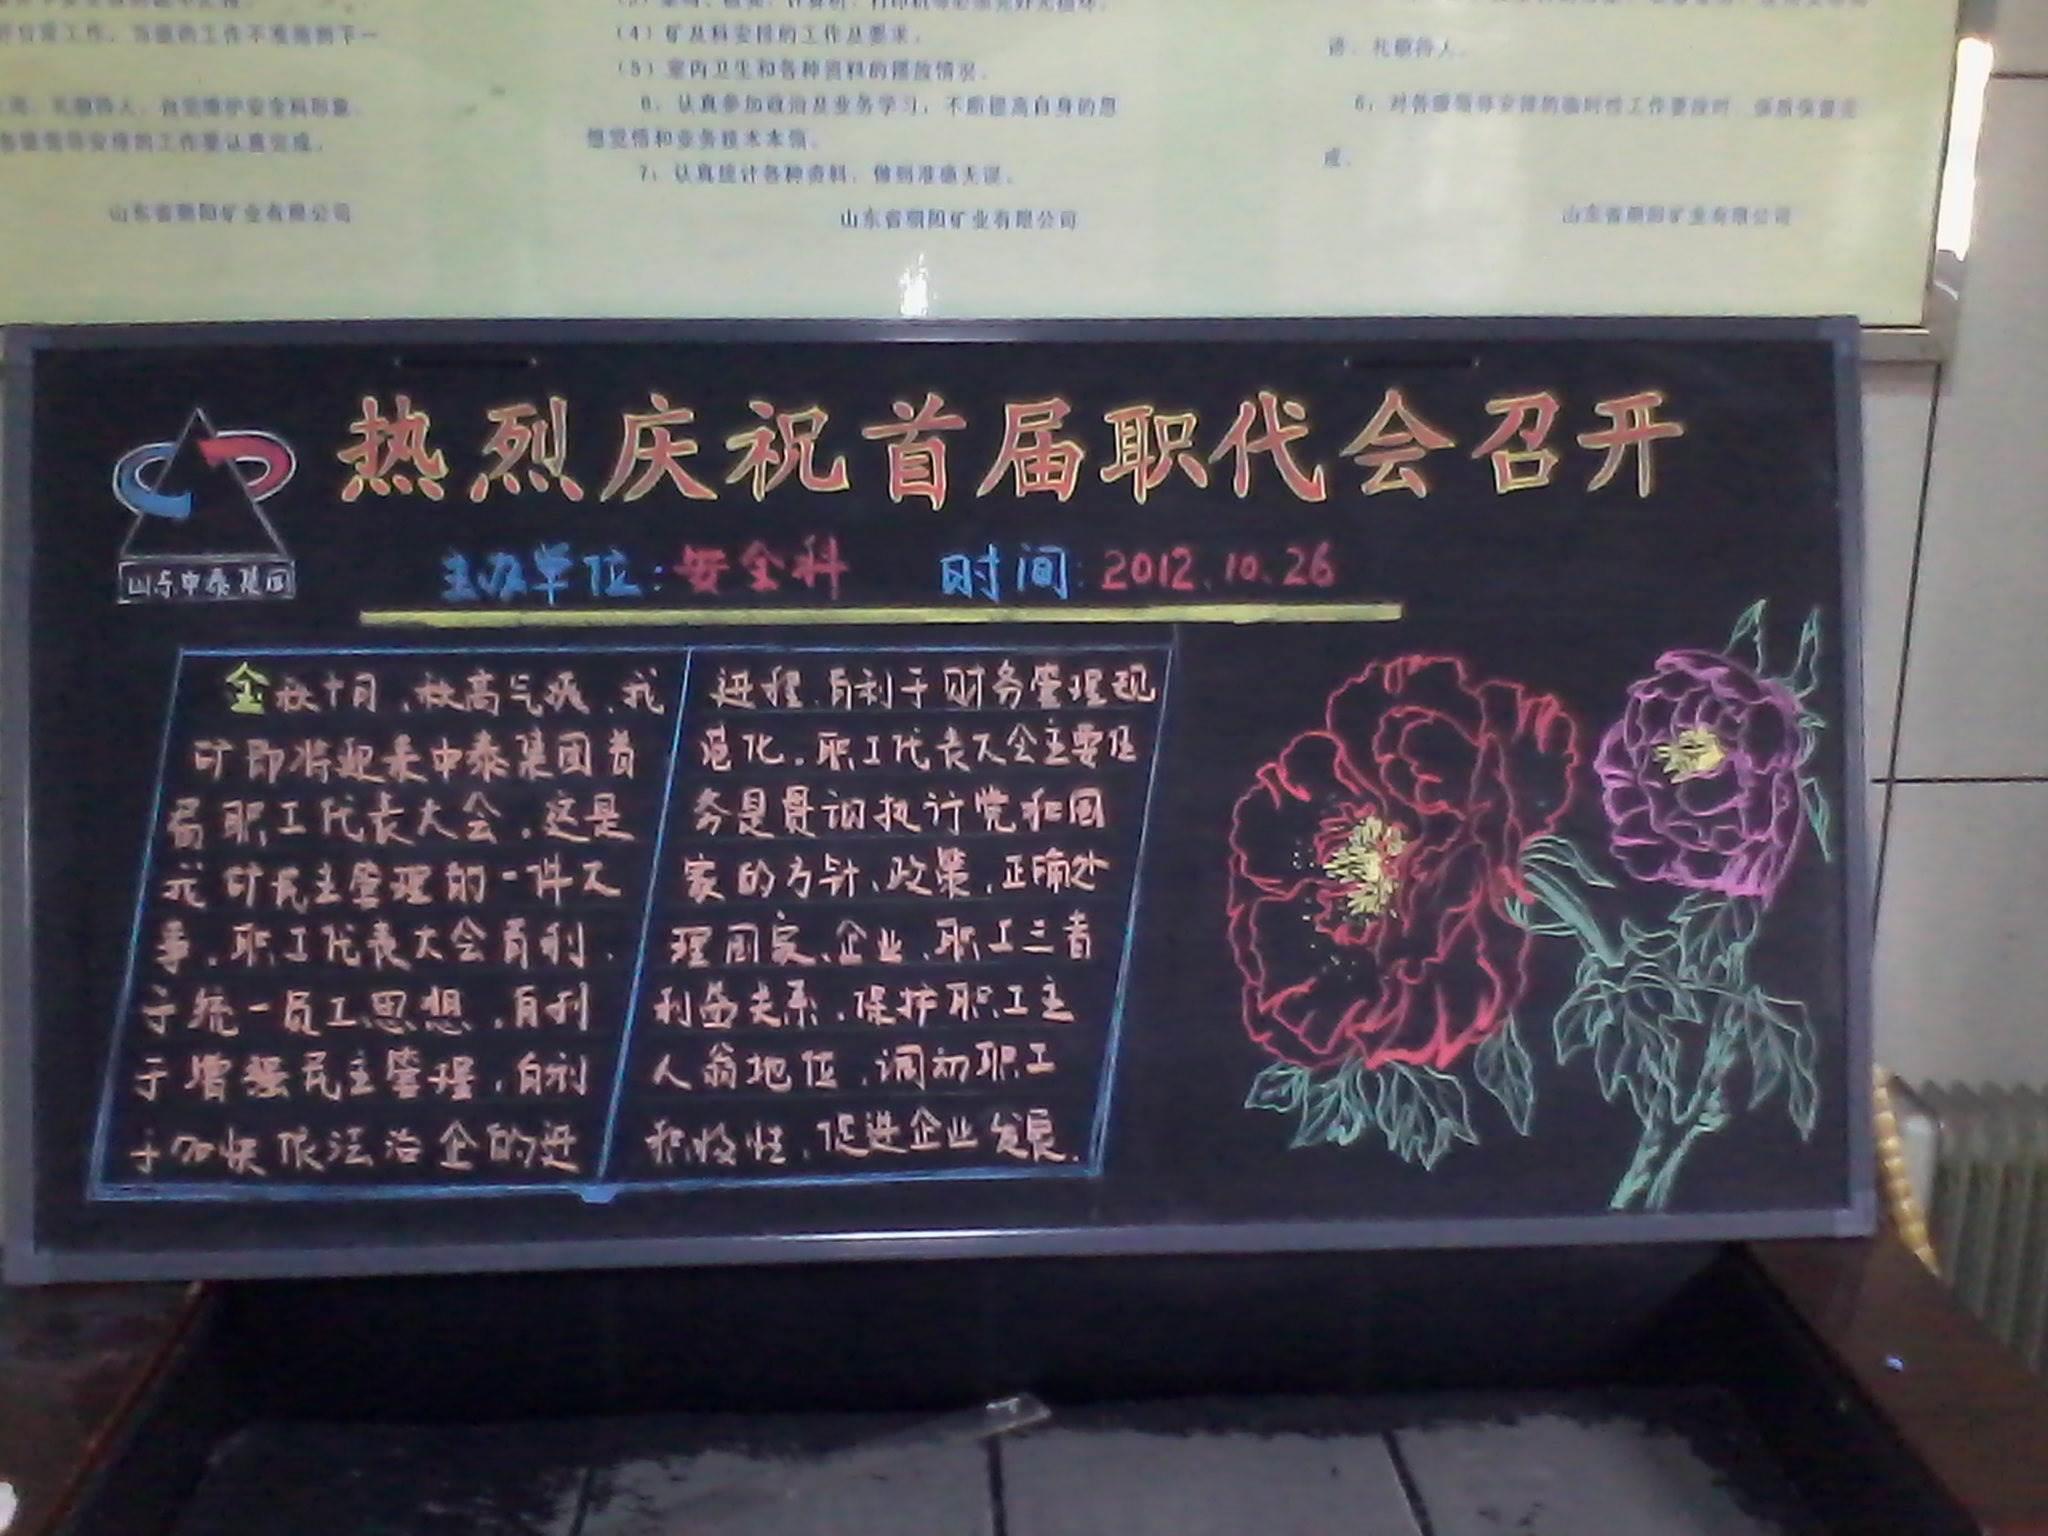 好日常工作，当班的工作不准拖到下一
（4）矿及科安排的工作及要求。
（5）室内卫生和各种资料的摆放情况。
6、认真参加政治及业务学习，不断提高自身的思
想觉悟和业务技术本领。
7、认真统计各种资料，做到准确无误。
语，礼貌待人。
6、对各级领导安排的临时性工作要按时、保质保量完
成。
礼貌待人，自觉维护安全科形象。
各级领导安排的工作要认真完成。
山东省朝阳矿业有限公司
山东省朝阳矿业有限公司
山东省朝阳矿业有限公司
热烈庆祝首届职代会召开
山东中泰集团
主办单位：安全科 时间：2012.10.26
金秋十月，秋高气爽，我
矿即将迎来中泰集团首
届职工代表大会，这是
我矿民主管理的一件大
事，职工代表大会有利
于统一员工思想，有利
于增强民主管理，有利
于加快依法治企的进
进程，有利于财务管理规
范化，职工代表大会主要任
务是贯彻执行党和国
家的方针、政策，正确处
理国家、企业、职工三者
利益关系，保护职工主
人翁地位，调动职工
积极性，促进企业发展。